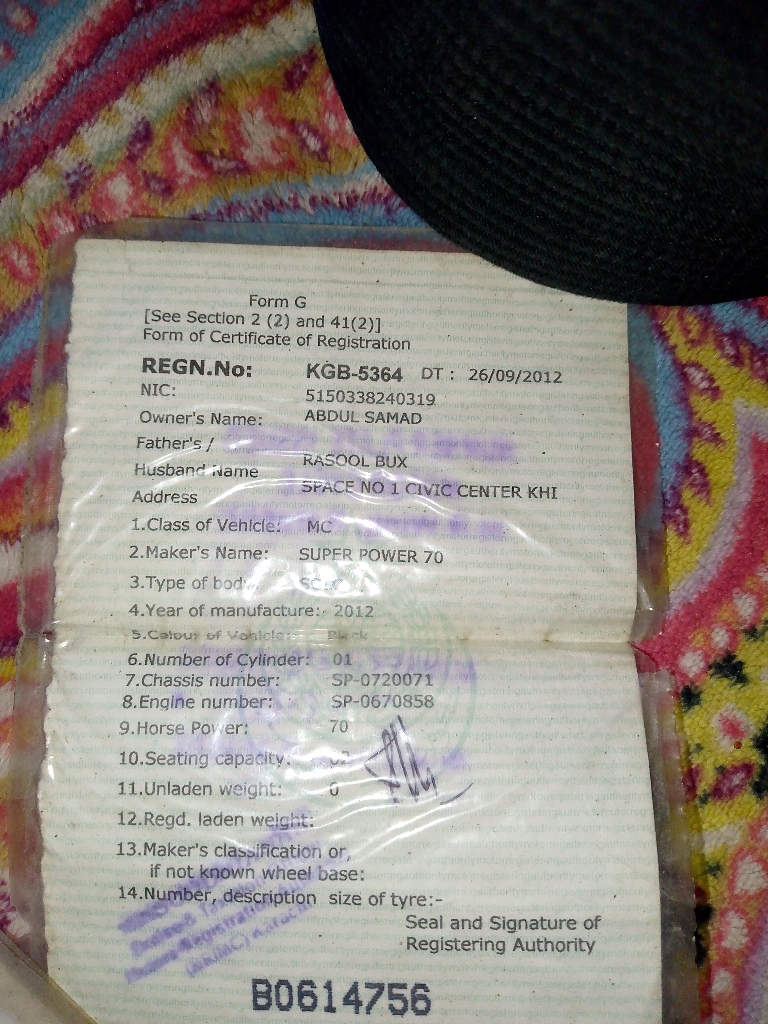 Form G
[See Section 2 (2) and 41(2)]
Form of Certificate of Registration
REGN.No: KGB-5364 DT : 26/09/2012
NIC: 5150338240319
Owner's Name: ABDUL SAMAD
Father's /
Husband Name RASOOL BUX
Address SPACE NO 1 CIVIC CENTER KHI
1.Class of Vehicle: MC
2.Maker's Name: SUPER POWER 70
3.Type of body:
4.Year of manufacture: 2012
5.Colour of Vehicle: Black
6.Number of Cylinder: 01
7.Chassis number: SP-0720071
8.Engine number: SP-0670858
9.Horse Power: 70
10.Seating capacity: 02
11.Unladen weight: 0
12.Regd. laden weight:
13.Maker's classification or,
if not known wheel base:
14.Number, description size of tyre:-
Seal and Signature of
Registering Authority
B0614756